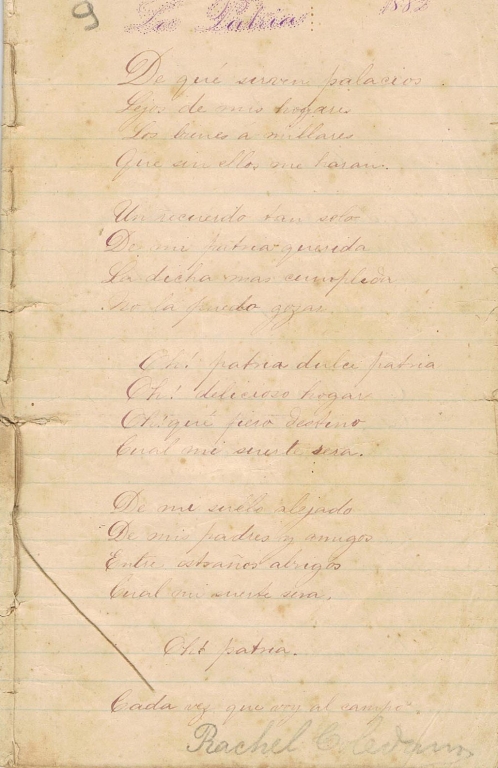 9 La Patria 188
De qué sirven palacios
Lejos de mis hogares
Los bienes a millares
Que sin ellos me haran.
Un recuerdo tan solo
De mi patria querida
La dicha mas
No la puedo gozar.
Oh! patria dulce patria
Oh! delicioso hogar
Oh! qué fiero destino
Cual mi suerte sera.
De mi suelo alejado
De mis padres y amigos
Entre estraños abrigos
Cual mi suerte sera.
Oh! patria.
Cada vez que voy al campo.
Rachel